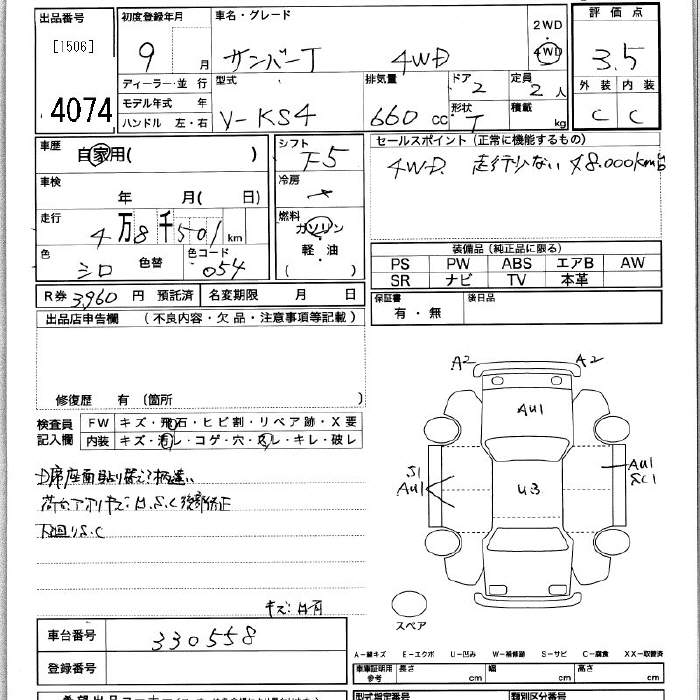 出品番号
[1506]
4074
初度登録年月
9 月
車名・グレード
サンバーT 4WD
2WD
4WD
評価点
3.5
外装 内装
C C
ディーラー・並 行
モデル年式 年
ハンドル 左・右
型式
V-KS4
排気量
660 cc
ドア
2
形状
T
定員
2 人
積載
kg
車歴
自家用( )
車検
年 月( 日)
走行
4万8千501 km
色
シロ 色替
色コード
054
シフト
F5
冷房
燃料
ガソリン
・
軽・油
( )
セールスポイント(正常に機能するもの)
4WD 走行少ない 48.000km台
装備品(純正品に限る)
PS PW ABS エアB AW
SR ナビ TV 本革
R券 3,960 円 預託済 名変期限 月 日
保証書
有・無
後日品
出品店申告欄 (不良内容・欠品・注意事項等記載)
修復歴 有〔箇所 〕
検査員
記入欄
FW キズ・飛石・ヒビ割・リペア跡・X要
内装 キズ・汚レ・コゲ・穴・スレ・キレ・破レ
下回りS.C
A2 A2
AU1
S1
AU1
U3
AU1
SC1
スペア
車台番号 330558
登録番号
A-線キズ E-エクボ U-凹み W-補修跡 S-サビ C-腐食 XX-取替済
車庫証明用
参考
長さ cm 幅 cm 高さ cm
型式指定番号 類別区分番号